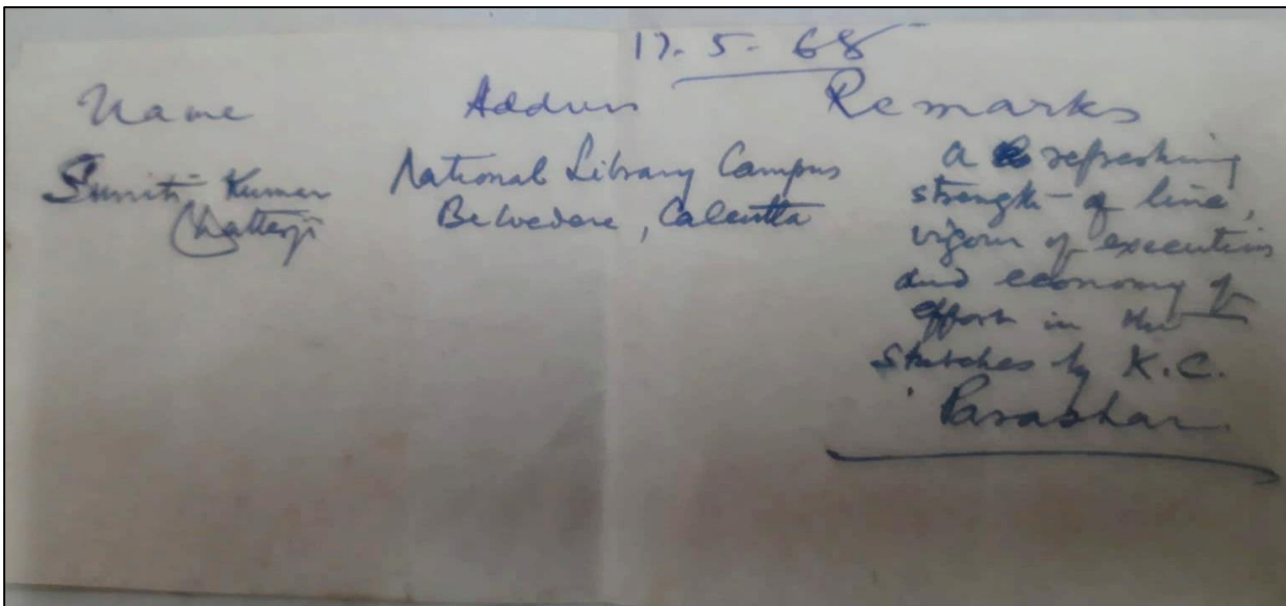 17-5-68
Name Address Remarks
Suniti Kumar
Chatterji
National Library Campus
Belvedere, Calcutta
a refreshing
strength of line,
vigour of execution
and economy of
effort in the
sketches by K.C.
Parashar